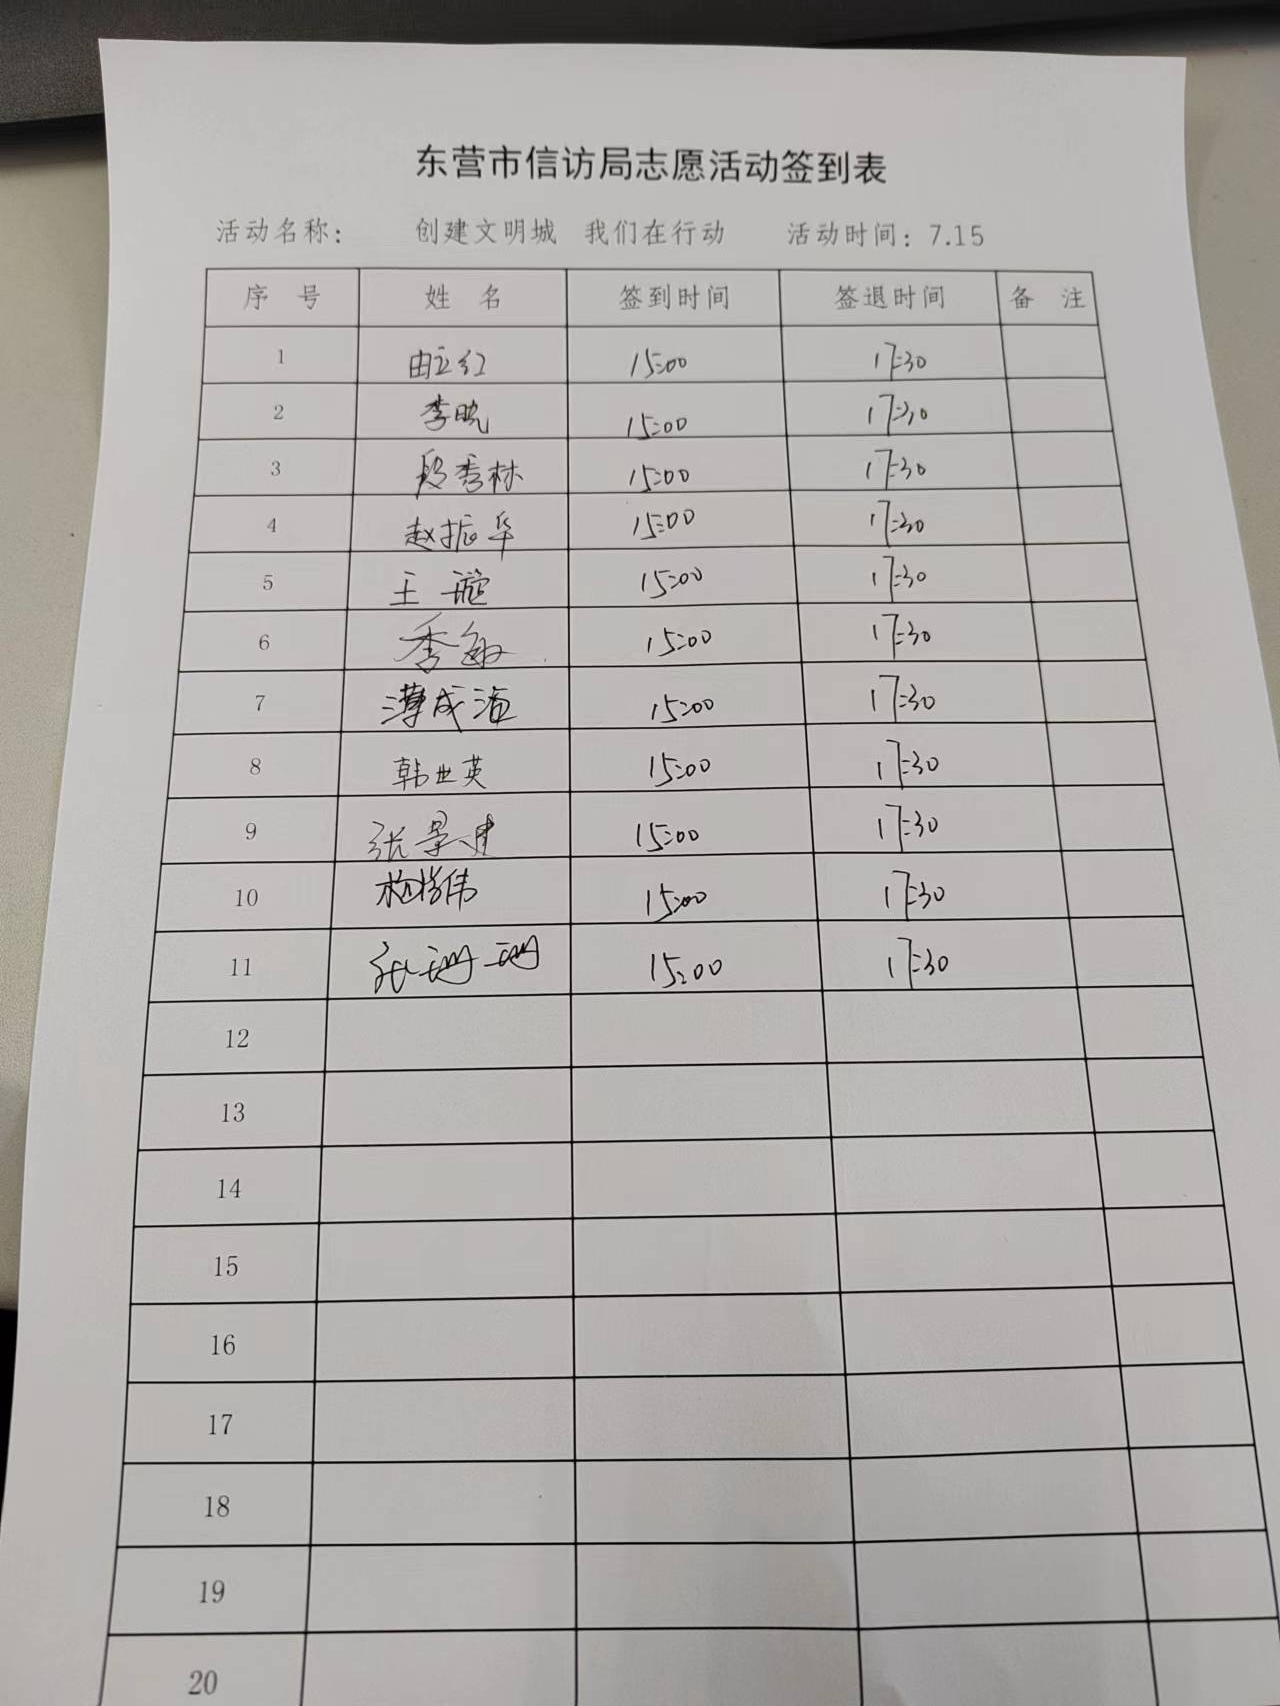 东营市信访局志愿活动签到表
活动名称： 创建文明城 我们在行动 活动时间：7.15
序 号 姓 名 签到时间 签退时间 备 注
1 由立红 15:00 17:30
2 李晓 15:00 17:30
3 段秀林 15:00 17:30
4 赵振华 15:00 17:30
5 王璇 15:00 17:30
6 季敏 15:00 17:30
7 薄成海 15:00 17:30
8 韩业英 15:00 17:30
9 张景 15:00 17:30
10 伟 15:00 17:30
11 张珊珊 15:00 17:30
12
13
14
15
16
17
18
19
20